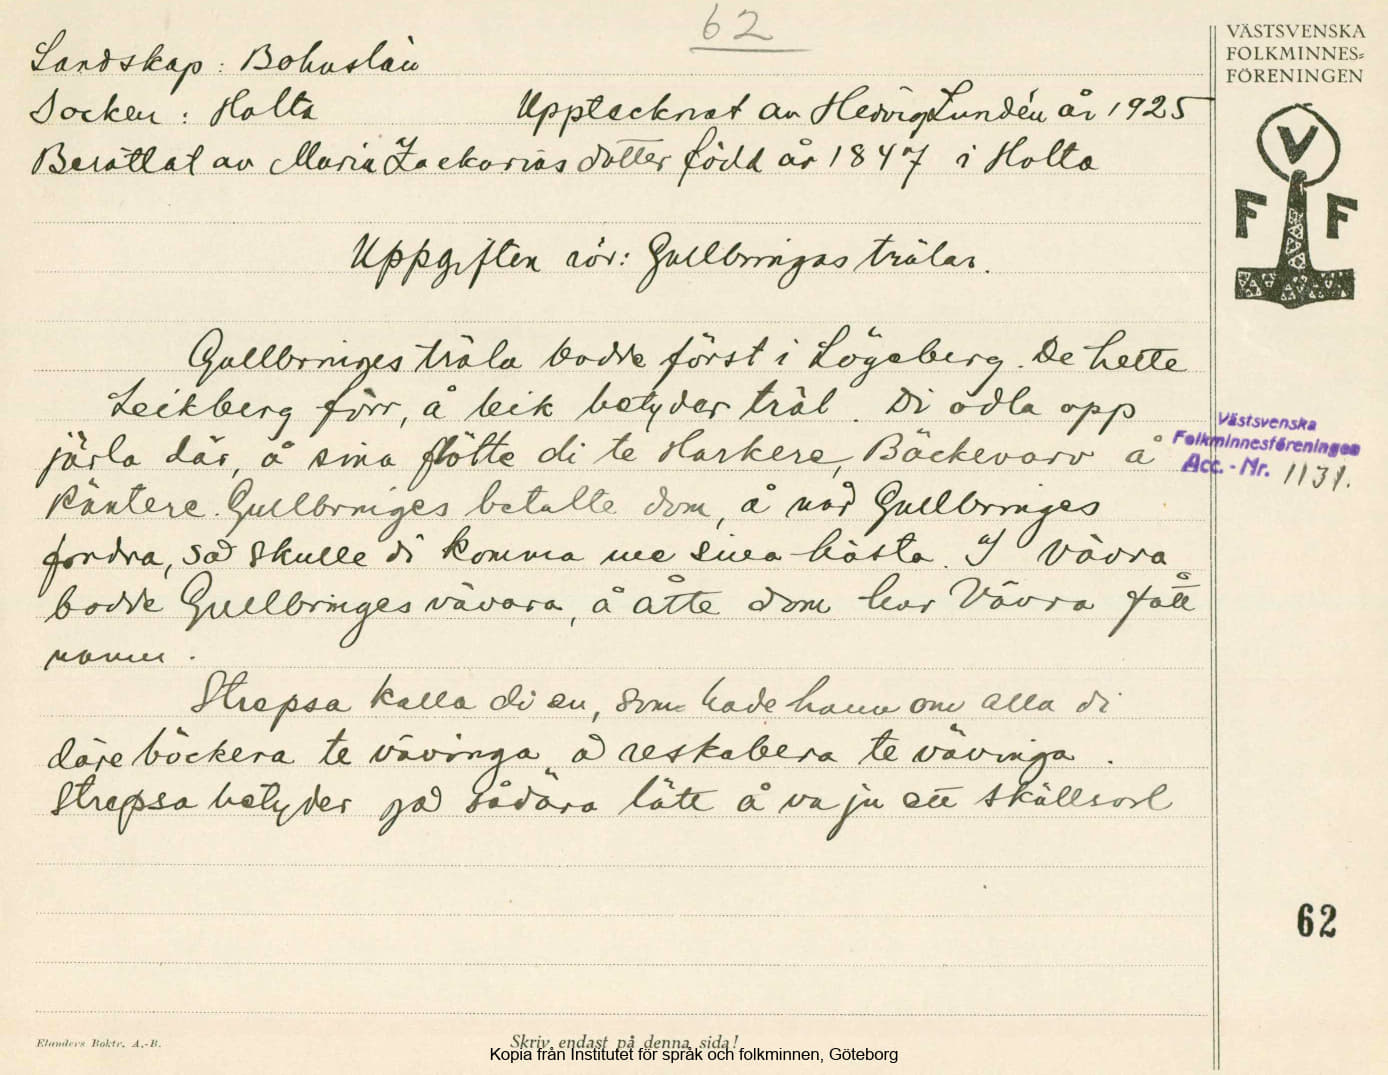 62
VÄSTSVENSKA
FOLKMINNES-
FÖRENINGEN
Landskap: Bohuslän
Socken: Holta Upptecknat av Hedvig Lundén år 1925
Berättat av Maria Zackariasdotter född år 1847 i Holta
V
F F
Uppgiften rör: Gullbringas trälar.
Gullbringes träla bodde först i Lögeberg. De hette
Leikberg förr, å leik betyder träl. Di odla opp
jårla där, å sina flötte di te Harkere, Bäckevarv å
Käntere. Gullbringes betalte dom, å når Gullbringes
fordra, så skulle di komma me sina hästa. I Vävra
bodde Gullbringes vävara, å åtte dom har Vävra fått
namn.
Västsvenska
Folkminnesföreningen
Acc. - Nr. 1131.
Strepsa kalla di en, som hade hann om alla di
däre böckera te vävinga å reskabera te vävinga.
Strepsa betyder på sådära lätt å va ju ett skällsord
62
Elanders Boktr. A.-B.
Skriv endast på denna sida!
Kopia från Institutet för språk och folkminnen, Göteborg